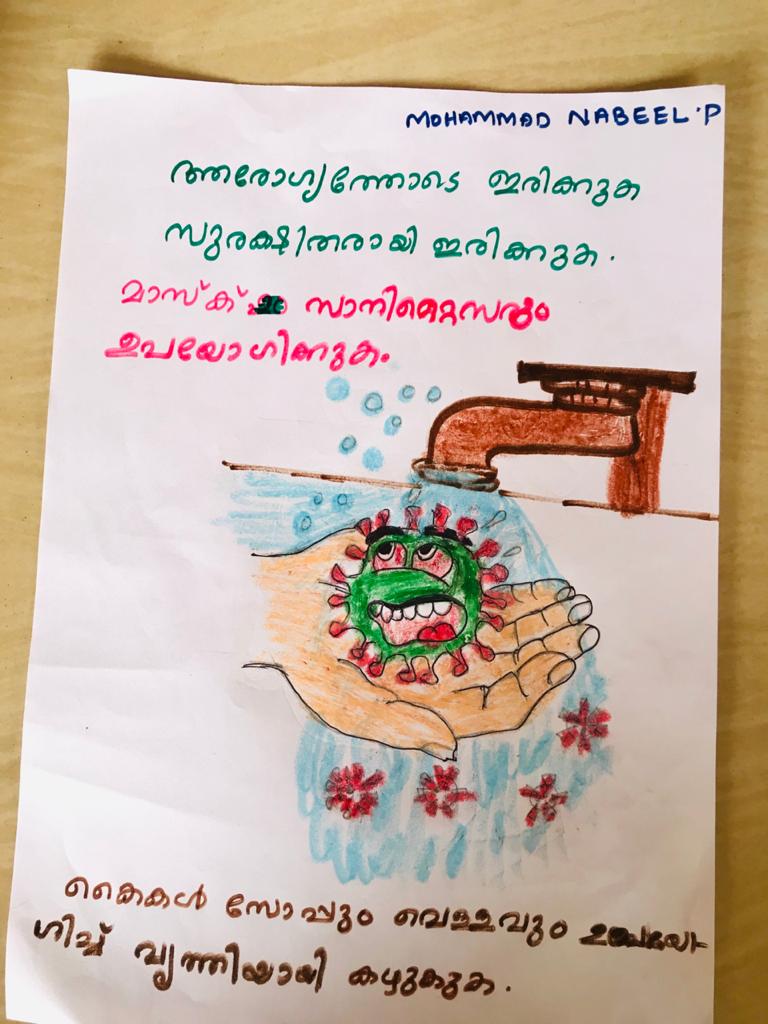 MOHAMMAD NABEEL.P
ആരോഗ്യത്തോടെ ഇരിക്കുക
സുരക്ഷിതരായി ഇരിക്കുക.
മാസ്ക് സാനിറ്റൈസറും
ഉപയോഗിക്കുക.
കൈകൾ സോപ്പും വെള്ളവും ഉപയോ-
ഗിച്ച് വൃത്തിയായി കഴുകുക.